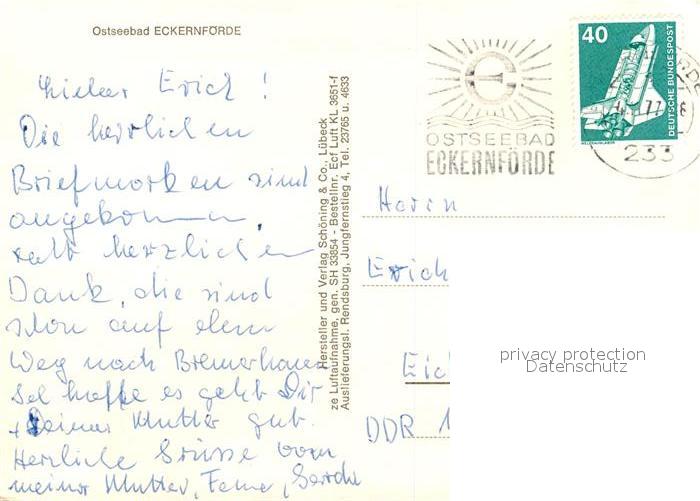 Ostseebad ECKERNFÖRDE
Lieber Erich !
Die herrlichen
Briefmarken sind
angekommen,
sehr herzlichen
Dank, die sind
schon auf dem
Weg nach Bremerhaven
Ich hoffe es geht Dir
+ Deiner Mutter gut.
Herzliche Grüsse von
meiner Mutter,
Hersteller und Verlag Schöning & Co., Lübeck
ze Luftaufnahme, gen. SH 33854 - Bestellnr. Ecf Luft KL 3651-f
Auslieferungsl. Rendsburg, Jungfernstieg 4, Tel. 23765 u. 4633
OSTSEEBAD
ECKERNFÖRDE
40
DEUTSCHE BUNDESPOST
77
233
Herrn
Erich
DDR 1
privacy protection
Datenschutz